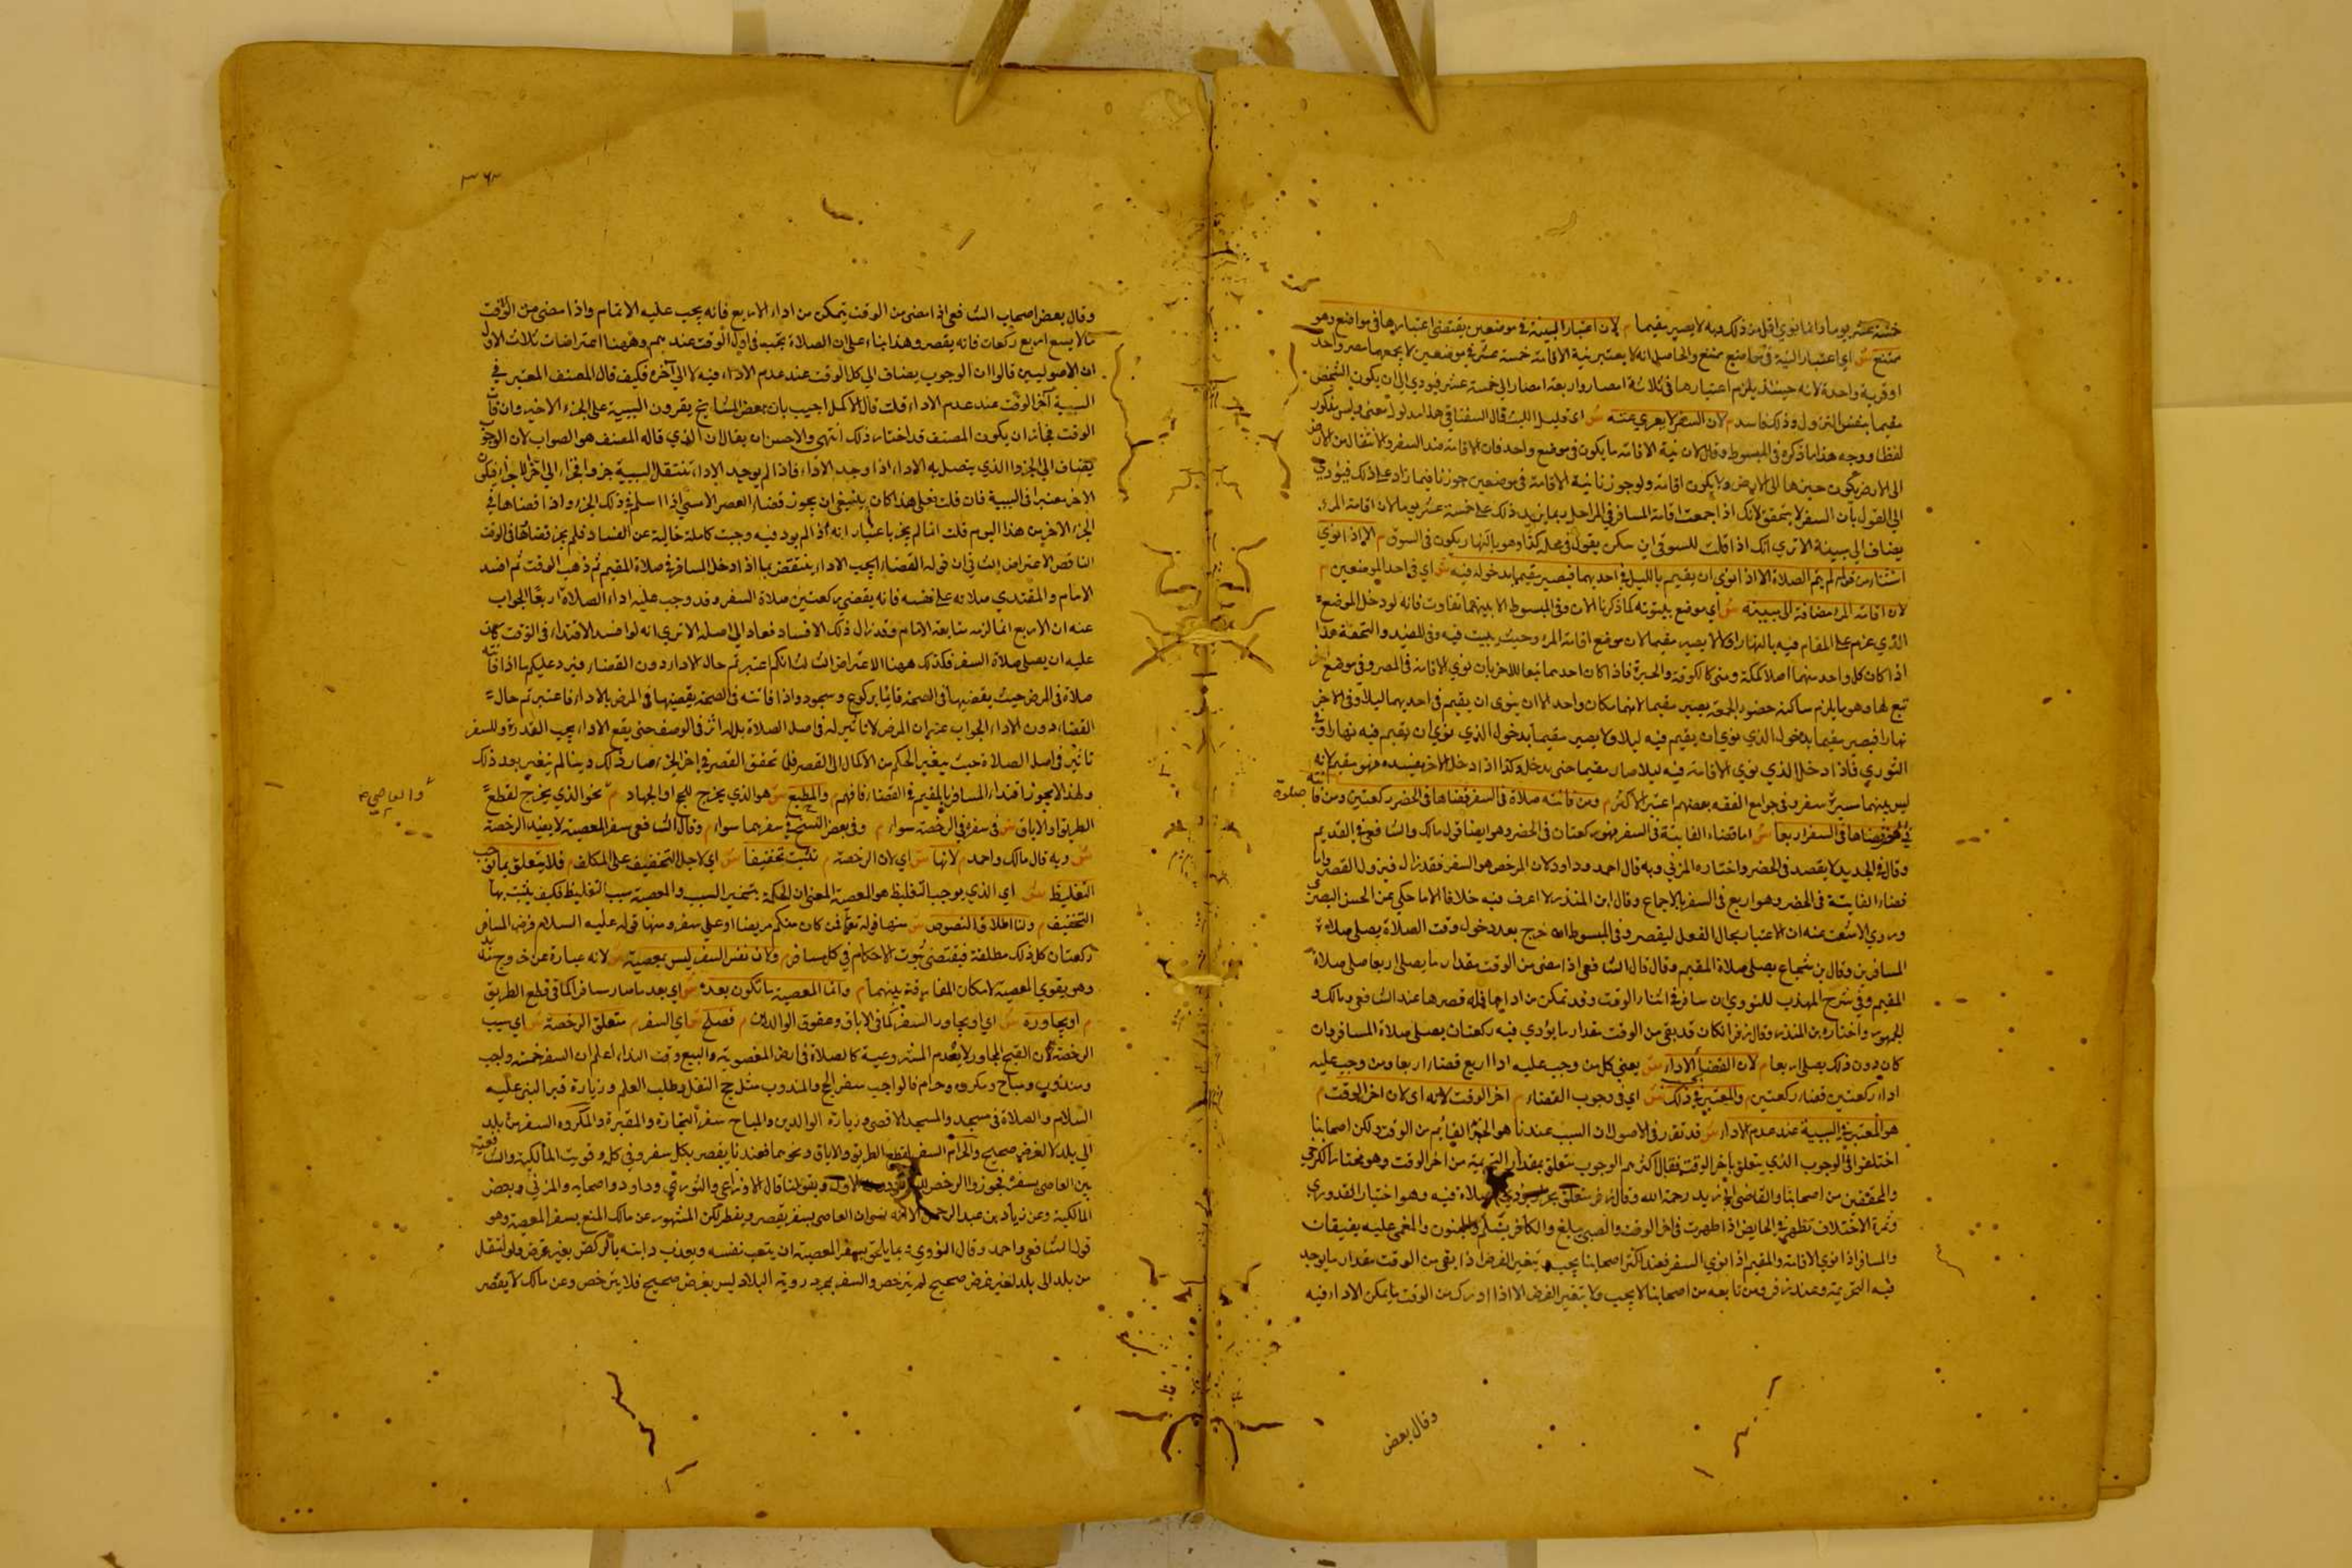 خمسة عشر يوما واما نوي اقل من ذلك فانه لا يصير مقيما م لان اعتبار البينة في موضعين يقتضي اعتبارها في مواضع وهو
ممتنع ش اي اعتبار النية في مواضع ممتنع والحاصل انه لا يعتبر نية الاقامة خمسة عشر في موضعين لا يجمعهما مصر واحد
او قرية واحدة لانه حينئذ يلزم اعتبارها في ثلاثة امصار واربعة امصار الى خمسة عشر فيودي الى ان يكون الشخص
مقيما بنفس النزول وذلك فاسد م لان السفر لا يعري عنه ش اي قليل اللبث قال السغناقي هذا مدلول معنى وليس بمذكور
لفظا ووجه هذا ما ذكره في المبسوط وقال لان نية الاقامة ما يكون في موضع واحد فان الاقامة ضد السفر والانتقال من الارض
الى الارض يكون ضربا في الارض ولا يكون اقامة ولو جوزنا نية الاقامة في موضعين جوزنا فيما زاد على ذلك فيؤدي
الى القول بان السفر لا يتحقق لانك اذا جمعت اقامة المسافر في المراحل ربما يزيد ذلك على خمسة عشر يوما لان اقامة المرء
يضاف الى مبيته الا تري انك اذا قلت للسوقي اين تسكن يقول في محلة كذا وهو بالنهار يكون في السوق م الا اذا نوي
استثناء من قوله لم يتم الصلاة الا اذا نوي ان يقيم بالليل في احديهما فيصير مقيما بدخوله فيه ش اي في احد الموضعين م
لان اقامة المرء مضافة الى مبيته ش اي موضع بيتوتته كما ذكرنا الان وفي المبسوط الا بينهما تفاوت فانه لو دخل الموضع
الذي عزم على المقام فيه بالنهار اولا لا يصير مقيما لان موضع اقامة المرء حيث يبيت فيه وفي المفيد والتحفة هذا
اذا كان كل واحد منهما اصلا كمكة ومنى كالكوفة والحيرة فاذا كان احدهما تبعا للاخر بان نوي الاقامة في المصر وفي موضع اخر
تبع لها وهو ما يلزم ساكنه حضور الجمعة يصير مقيما لانهما مكان واحد الا ان ينوي ان يقيم في احديهما ليلا وفي الاخر
نهارا فيصير مقيما بدخول الذي نوي ان يقيم فيه ليلا ولا يصير مقيما بدخول الذي نوي ان يقيم فيه نهارا وفي
النوري فاذا دخل الذي نوي الاقامة فيه ليلا صار مقيما حتى يدخل وكذا اذا دخل الاخر بعده فهو مقيم لانه
ليس بينهما مسيرة سفر وفي جوامع الفقه بعضهم اعتبر الاكثر م ومن فاتته صلاة في السفر قضاها في الحضر ركعتين ومن فاتته صلوة
في الحضر قضاها في السفر اربعا ش اما قضاء الفائتة في السفر فهو ركعتان في الحضر وهو ايضا قول مالك والشافعي في القديم
وقال في الجديد لا يقصر في الحضر واختاره المزني وبه قال احمد وداود لان المرخص هو السفر فقد زال فيزول القصر واما
قضاء الفايتة في الحضر وهو اربع في السفر بالاجماع وقال ابن المنذر لا اعرف فيه خلافا الا ما حكي عن الحسن البصري
وروي الاشعث عنه ان الاعتبار بحال الفعل ليقصر وفي المبسوط خرج بعد دخول وقت الصلاة يصلي صلاة
المسافرين وقال بن شجاع يصلي صلاة المقيم وقال قال الشافعي اذا مضى من الوقت مقدار ما يصلي اربعا صلى صلاة
المقيم وفي شرح المهذب للنووي ان سافر في اثناء الوقت وقد تمكن من ادائها فله قصرها عند الشافعي ومالك و
الجمهور واختاره بن المنذر وقال زفر ان كان قد بقي من الوقت مقدار ما يؤدي فيه ركعتان يصلي صلاة المسافر وان
كان دون ذلك يصلي اربعا م لان القضاء بحسب الاداء ش يعني كل من وجب عليه اداء اربع قضاء اربعا ومن وجب عليه
اداء ركعتين قضاء ركعتين م والمعتبر في ذلك ش اي في وجوب القضاء م اخر الوقت لانه اي لان اخر الوقت م
هو المعتبر في السببية عند عدم الاداء ش قد تقرر في الاصول ان السبب عندنا هو الجزء القائم من الوقت ولكن اصحابنا
اختلفوا في الوجوب الذي يتعلق باخر الوقت فقال اكثرهم الوجوب متعلق بمقدار التحريمة من اخر الوقت وهو مختار الكرخي
والمحققين من اصحابنا والقاضي ابي زيد رحمة الله وقال زفر متعلق بجزء يؤدي الصلاة فيه وهو اختيار القدوري
وثمرة الاختلاف تظهر في الحايض اذا طهرت في اخر الوقت والصبي يبلغ والكافر يسلم والمجنون والمغمى عليه يفيقان
والمسافر اذا نوي الاقامة والمقيم اذا نوي السفر فعند اكثر اصحابنا يجب ويتغير الفرض اذا بقي من الوقت مقدار ما يوجد
فيه التحريمة وعند زفر ومن تابعه من اصحابنا لا يجب ولا يتغير الفرض الا اذا ادرك من الوقت ما يمكن الاداء فيه
وقال بعض
٣٦٣
وقال بعض اصحاب الشافعي اذا مضى من الوقت يتمكن من اداء الاربع فانه يجب عليه الاتمام واذا مضى من الوقت
ما لا يسع اربع ركعات فانه يقصر وهذا بناء على ان الصلاة تجب في اول الوقت عندهم وههنا اعتراضات ثلاث الاول
ان الاصوليين قالوا ان الوجوب يضاف الى كل الوقت عند عدم الاداء فيه لا الى آخره فكيف قال المصنف المعتبر في
السببية آخر الوقت عند عدم الاداء قلت قال الاكمل اجيب بان بعض المشايخ يقررون السببية على الجزء الاخير وان فات
الوقت فجاز ان يكون المصنف قد اختار ذلك انتهى والاحسن ان يقال ان الذي قاله المصنف هو الصواب لان الوجوب
يضاف الى الجزء الذي يتصل به الاداء اذا وجد الاداء فاذا لم يوجد الاداء تنتقل السببية جزوا فجزاء الى اخر الاجزاء فيكون
الاخر معتبرا في السببية فان قلت فعلى هذا كان ينبغي ان يجوز قضاء العصر الامسي اذا اسلم في ذلك الجزء واذا قضاها في
الجزء الاخر من هذا اليوم قلت انما لم يجز باعتبار انه اذا لم يود فيه وجبت كاملة خالية عن الفساد فلم يجز قضاؤها في الوقت
الناقص الاعتراض الثاني ان قوله القضاء بحسب الاداء ينتقض بما اذا دخل المسافر في صلاة المقيم ثم ذهب الوقت ثم افسد
الامام والمقتدي صلاته على نفسه فانه يقضي ركعتين صلاة السفر وقد وجب عليه اداء الصلاة اربعا الجواب
عنه ان الاربع انما لزمه متابعة الامام وقد زال ذلك الافساد فعاد الى اصله الا تري انه لو افسد الاقتداء في الوقت كان
عليه ان يصلي صلاة السفر فكذلك ههنا الاعتراض الثالث انكم اعتبرتم حال الاداء دون القضاء فيرد عليكم ما اذا فاتته
صلاة في المرض حيث يقضيها في الصحة قائما بركوع وسجود واذا فاتته في الصحة يقضيها في المرض بالايماء فاعتبرتم حال
القضاء دون الاداء الجواب عنه ان المرض لا تأثير له في اصل الصلاة بل له اثر في الوصف حتى يقع الاداء بحسب القدرة وللسفر
تاثير في اصل الصلاة حيث يتغير الحكم من الاكمال الى القصر فلما تحقق القصر في اخر الجزء صار ذلك دينا لم يتغير بعد ذلك
ولهذا لا يجوز اقتداء المسافر بالمقيم في القضاء فافهم م والمطيع ش هو الذي يخرج للحج او الجهاد م والعاصي نحو الذي يخرج لقطع
الطريق والاباق ش في سفره في الرخصة سواء م وفي بعض النسخ في سفرهما سواء م وقال الشافعي سفر المعصية لا يفيد الرخصة
ش وبه قال مالك واحمد م لانها ش اي لان الرخصة م تثبت تخفيفا ش اي لاجل التخفيف على المكلف م فلا يتعلق بما يوجب
التغليظ ش اي الذي يوجب التغليظ هو المعصية المعنى ان الحكمة بتعتبر السبب والمعصية سبب التغليظ فكيف يثبت بها
التخفيف م ولنا اطلاق النصوص ش منها قوله تعالى فمن كان منكم مريضا او على سفر ومنها قوله عليه السلام فرض المسافر
ركعتان كل ذلك مطلقة فيقتضي ثبوت الاحكام في كل مسافر م ولان نفس السفر ليس بمعصية ش لانه عبارة عن خروج مديد
وهو يقوي المعصية لامكان المفارقة بينهما م وانما المعصية ما تكون بعده ش اي بعد ما صار مسافرا كما في قطع الطريق
م او يجاوره ش اي او يجاور السفر كما في الاباق وعقوق الوالدين م فصلح ش اي السفر م متعلق الرخصة ش اي سبب
الرخصة لان القبح المجاور لا يعدم المشروعية كالصلاة في ارض المغصوبة والبيع وقت النداء اعلم ان السفر خمسة واجب
ومندوب ومباح ومكروه وحرام فالواجب سفر الحج والمندوب مثل حج النفل وطلب العلم وزيارة قبر النبي عليه
السلام والصلاة في مسجده والمسجد الاقصى وزيارة الوالدين والمباح سفر التجارة والمقبرة والمكروه السفر من بلد
الى بلد لا لغرض صحيح والحرام السفر لقطع الطريق والاباق ونحوهما فعندنا يقصر بكل سفر وفي كل وقويت المالكية والشافعية
بين العاصي بسفره فجوزوا الرخص للثاني دون الاول وبقولنا قال الاوزاعي والثوري وداود واصحابه والمزني وبعض
المالكية وعن زياد بن عبد الرحمن الا انه ان العاصي بسفر يقصر ويفطر لكن المشهور عن مالك المنع بسفر المعصية وهو
قول الشافعي واحمد وقال النووي ومما يلحق بسفر المعصية ان يتعب نفسه ويعذب دابته بالركض بغير غرض ولو انتقل
من بلد الى بلد لغير غرض صحيح لم يترخص والسفر بمجرد روية البلاد ليس بغرض صحيح فلا يترخص وعن مالك لا يقصر